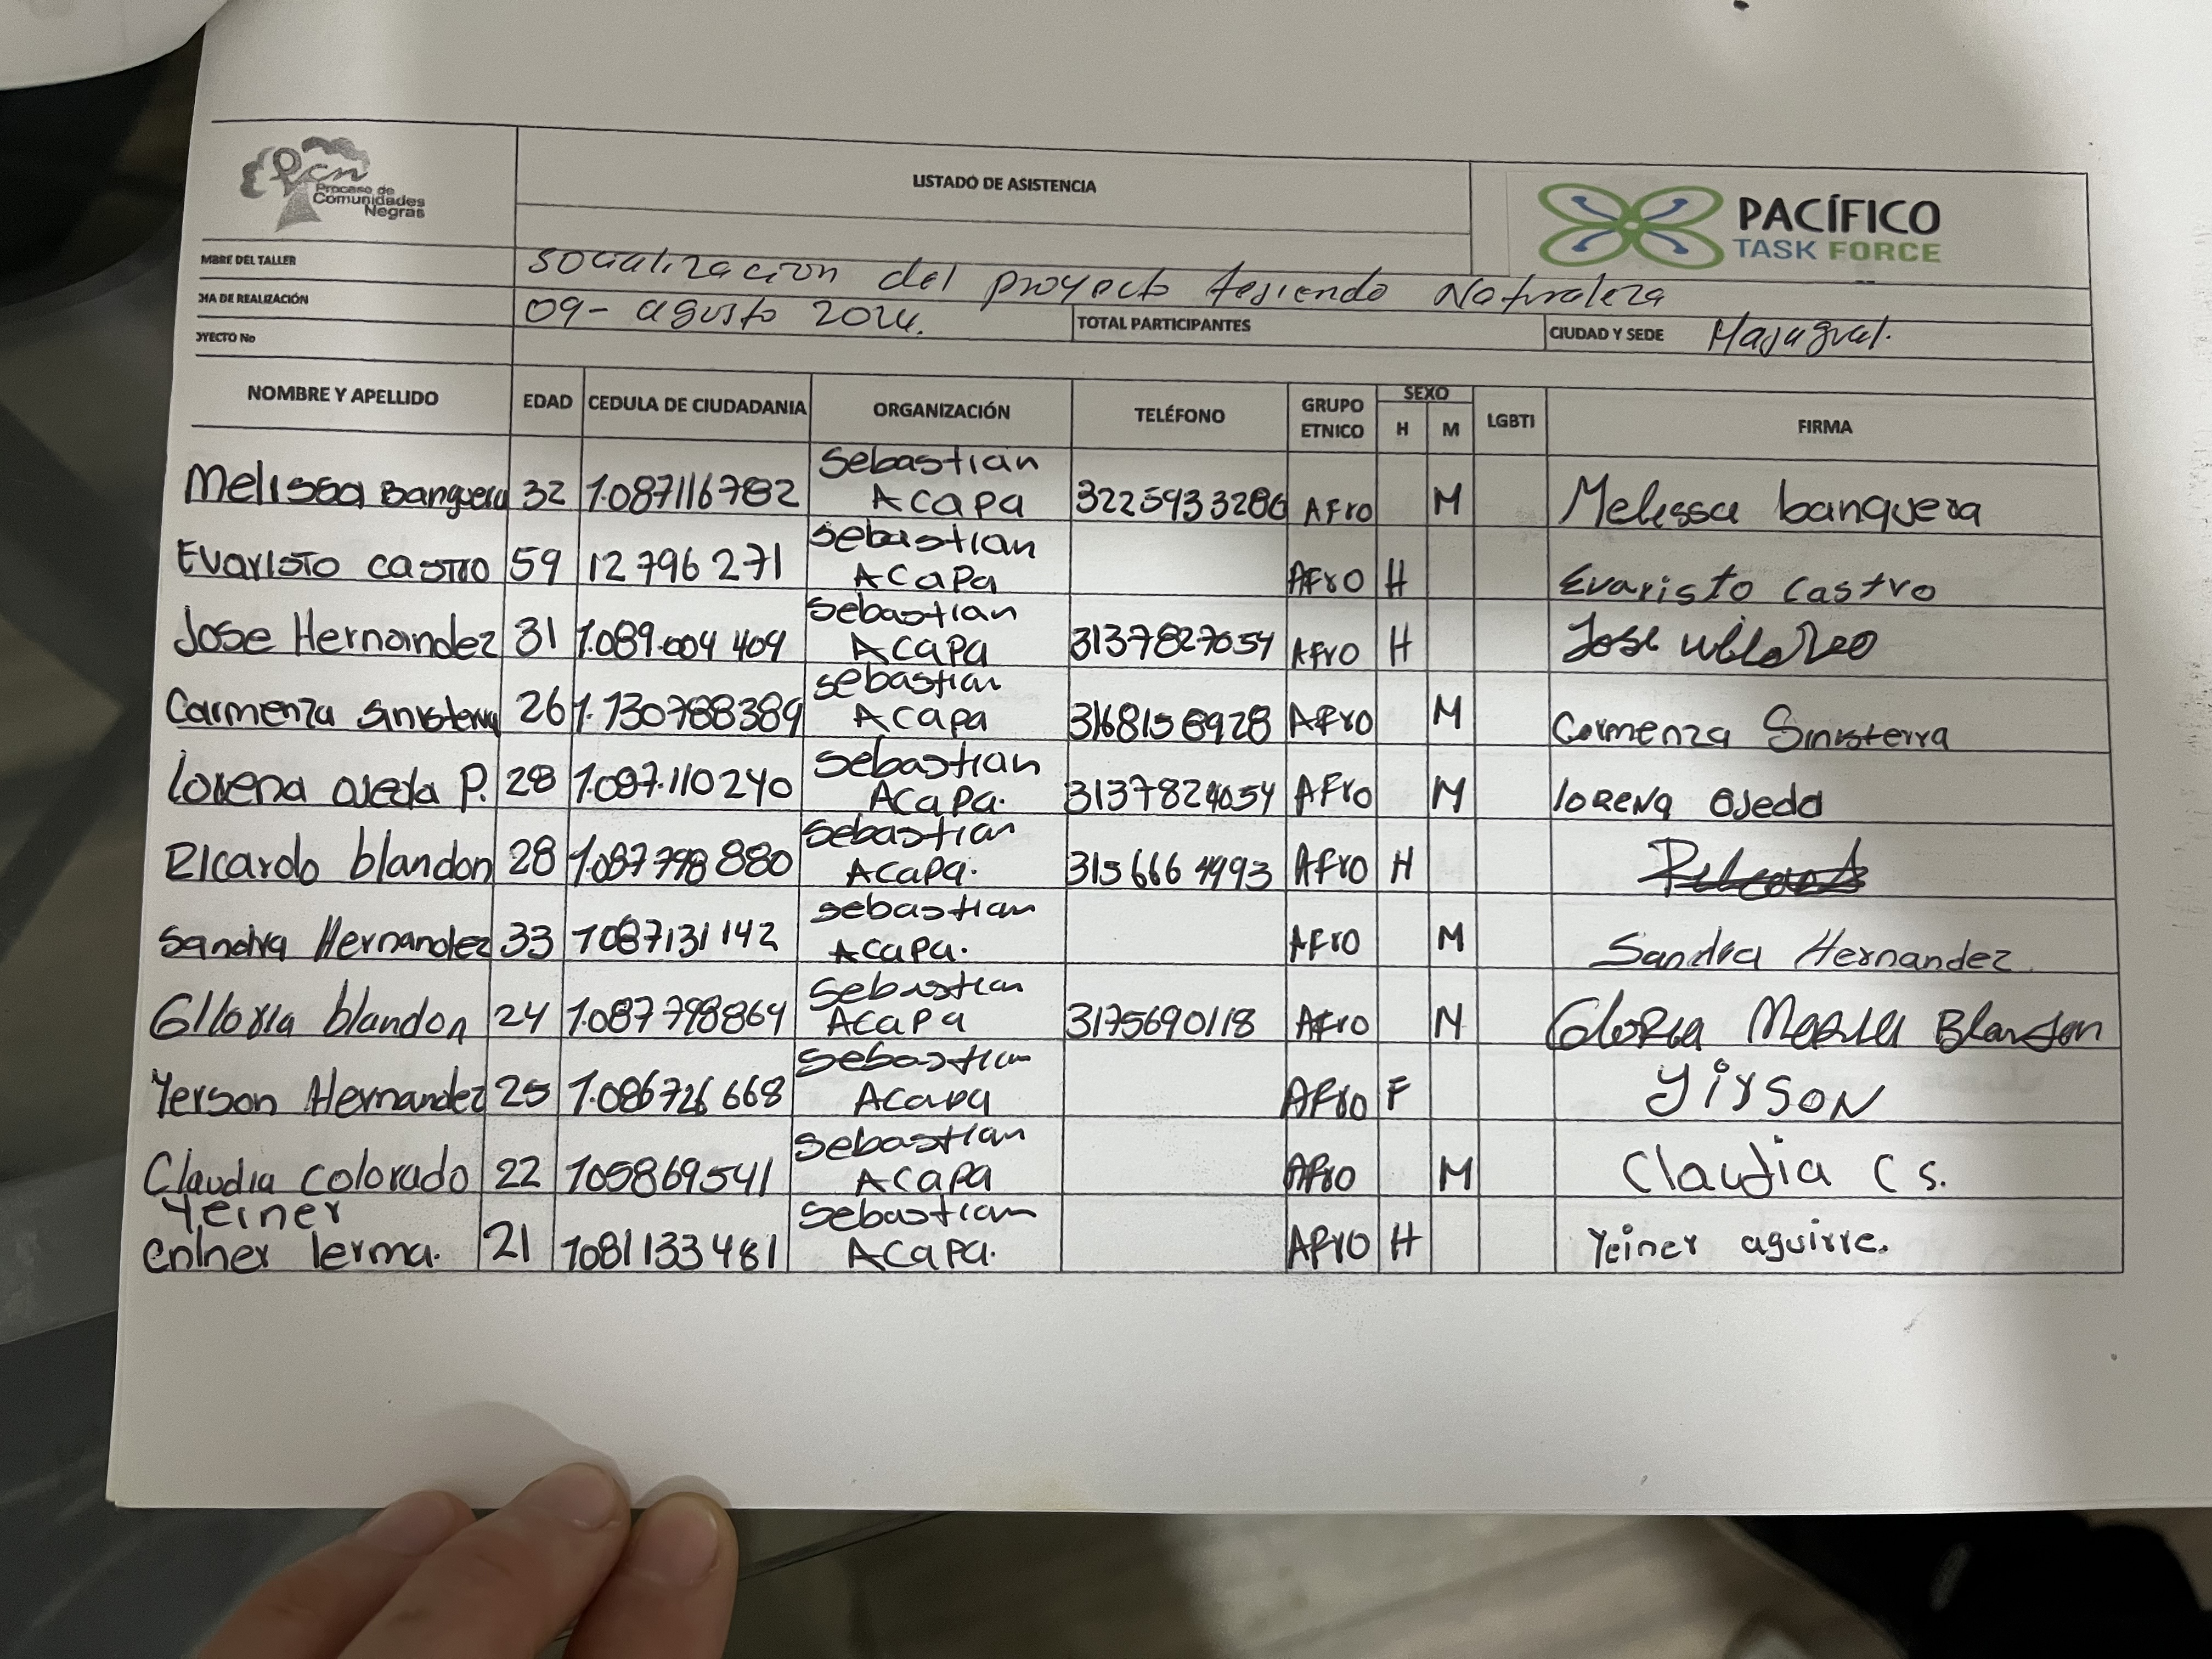 Pcn
Proceso de
Comunidades
Negras
LISTADO DE ASISTENCIA
PACÍFICO
TASK FORCE
MBRE DEL TALLER socialización del proyecto tejiendo Naturaleza
HA DE REALIZACIÓN 09- agusto 2024. TOTAL PARTICIPANTES CIUDAD Y SEDE Majagual.
OYECTO No
NOMBRE Y APELLIDO EDAD CEDULA DE CIUDADANIA ORGANIZACIÓN TELÉFONO GRUPO ETNICO SEXO H M LGBTI FIRMA
Melissa Banguera 32 1.087116782 Sebastian ACAPA 3225933286 AFro M Melissa banguera
Evaristo castro 59 12 796 271 Sebastian ACAPA AFro H Evaristo Castro
Jose Hernandez 31 1.089.004 409 Sebastian ACAPA 3137827054 AFro H Jose
Carmenza Sinisterra 26 1.130788389 Sebastian ACAPA 3168158928 AFro M Carmenza Sinisterra
Lorena Ojeda P. 28 1.087.110240 Sebastian ACAPA. 3137824054 AFro M lorena Ojeda
Ricardo blandon 28 1.087798880 Sebastian ACAPA. 315 666 4993 AFro H
Sandra Hernandez 33 1087131142 Sebastian ACAPA. AFro M Sandra Hernandez
Glloria blandon 24 1.087798864 Sebastian ACAPA 3175690118 AFro M Gloria Maria Blandon
Yerson Hernandez 25 1.086726668 Sebastian ACAPA AFro F Yirson
Claudia colorado 22 105869541 Sebastian ACAPA AFro M Claudia C s.
Yeiner
enlner lerma. 21 1081133481 Sebastian ACAPA. AFro H Yeiner aguirre.